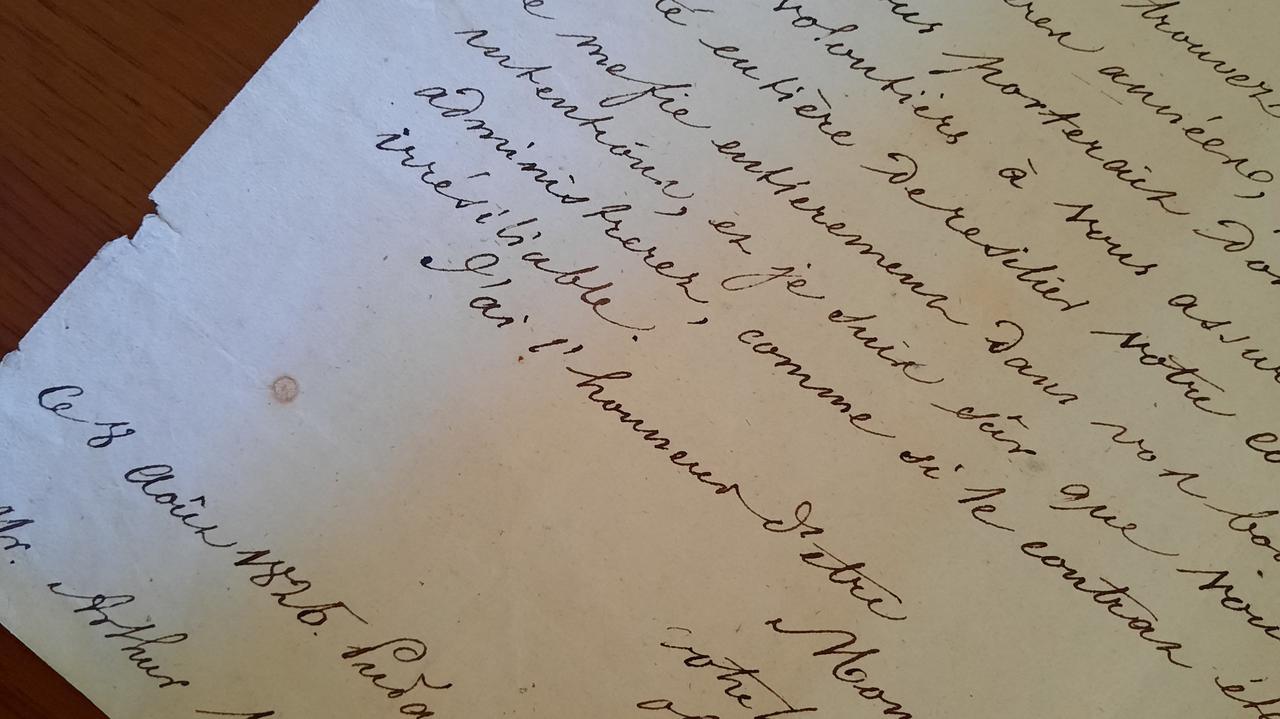 trouvez
année,
porterait
volontiers à vous assu
entière de resilier votre
me fie entierement dans vos
intentions, et je suis sûr que vou
administrerez, comme si le contrat
irrésiliable.
J'ai l'honneur d'être
Mon
votre
Ce 8 Août 1826.
Mr. Arthur